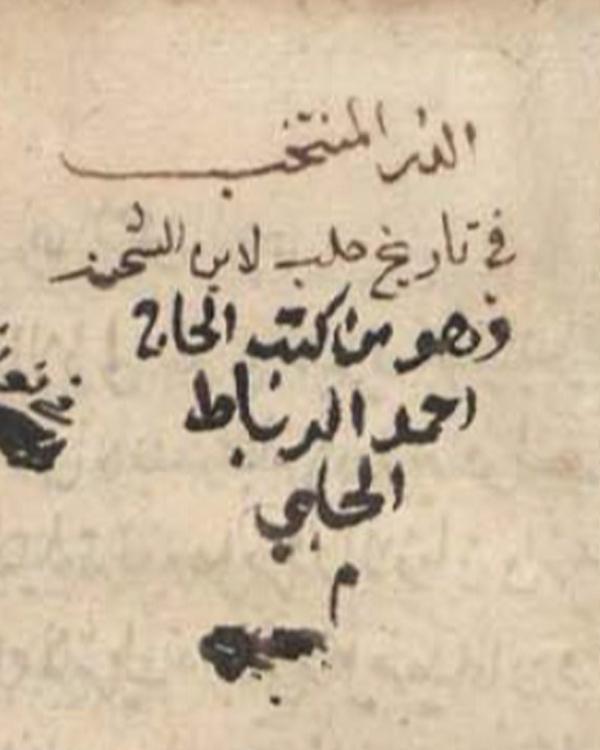 الدر المنتخب
في تاريخ حلب لابن الشحنة
وهو من كتب الحاج
احمد الرباط
الحلبي
م